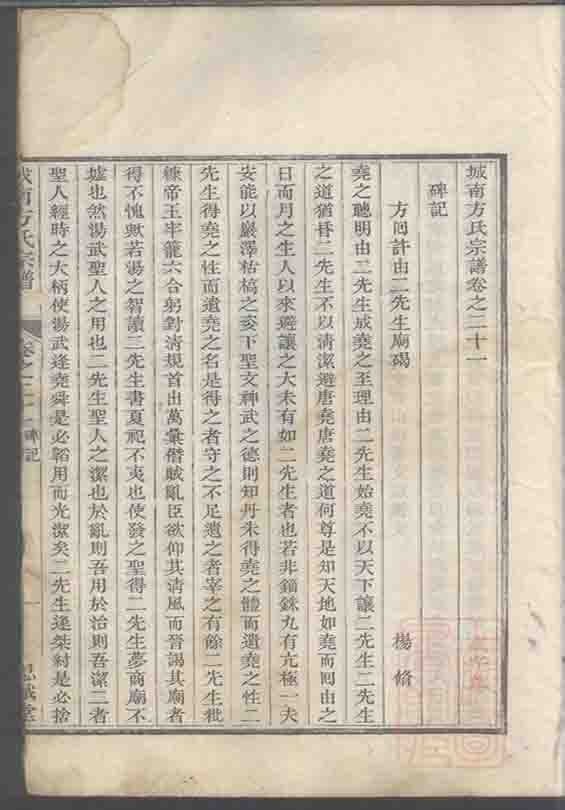 城南方氏宗譜卷之二十一
碑記
方回許由二先生廟碣
楊脩
堯之聰明由二先生成堯之至理由二先生始堯不以天下讓二先生二先生
之道猶昏二先生不以清潔避唐堯唐堯之道何尊是知天地如堯而囘由之
日而月之生人以來遜讓之大未有如二先生者也若非錙銖九有亢極一夫
安能以巖澤枯槁之姿下聖文神武之德則知丹朱得堯之體而遺堯之性二
先生得堯之性而遺堯之名是得之者守之不足遺之者宰之有餘二先生粃
糠帝王牢籠六合躬對清規首出萬彙僭賊亂臣欲仰其清風而晉謁其廟者
得不愧歟若湯之智讀二先生書夏祀不夷也使發之聖得二先生夢商廟不
墟也然湯武聖人之用也二先生聖人之潔也於亂則吾用於治則吾潔二者
聖人經時之大柄使湯武逢堯舜是必韜用而光潔矣二先生逢桀紂是必捨
城南方氏宗譜
卷之二十一 碑記
一
思誠堂